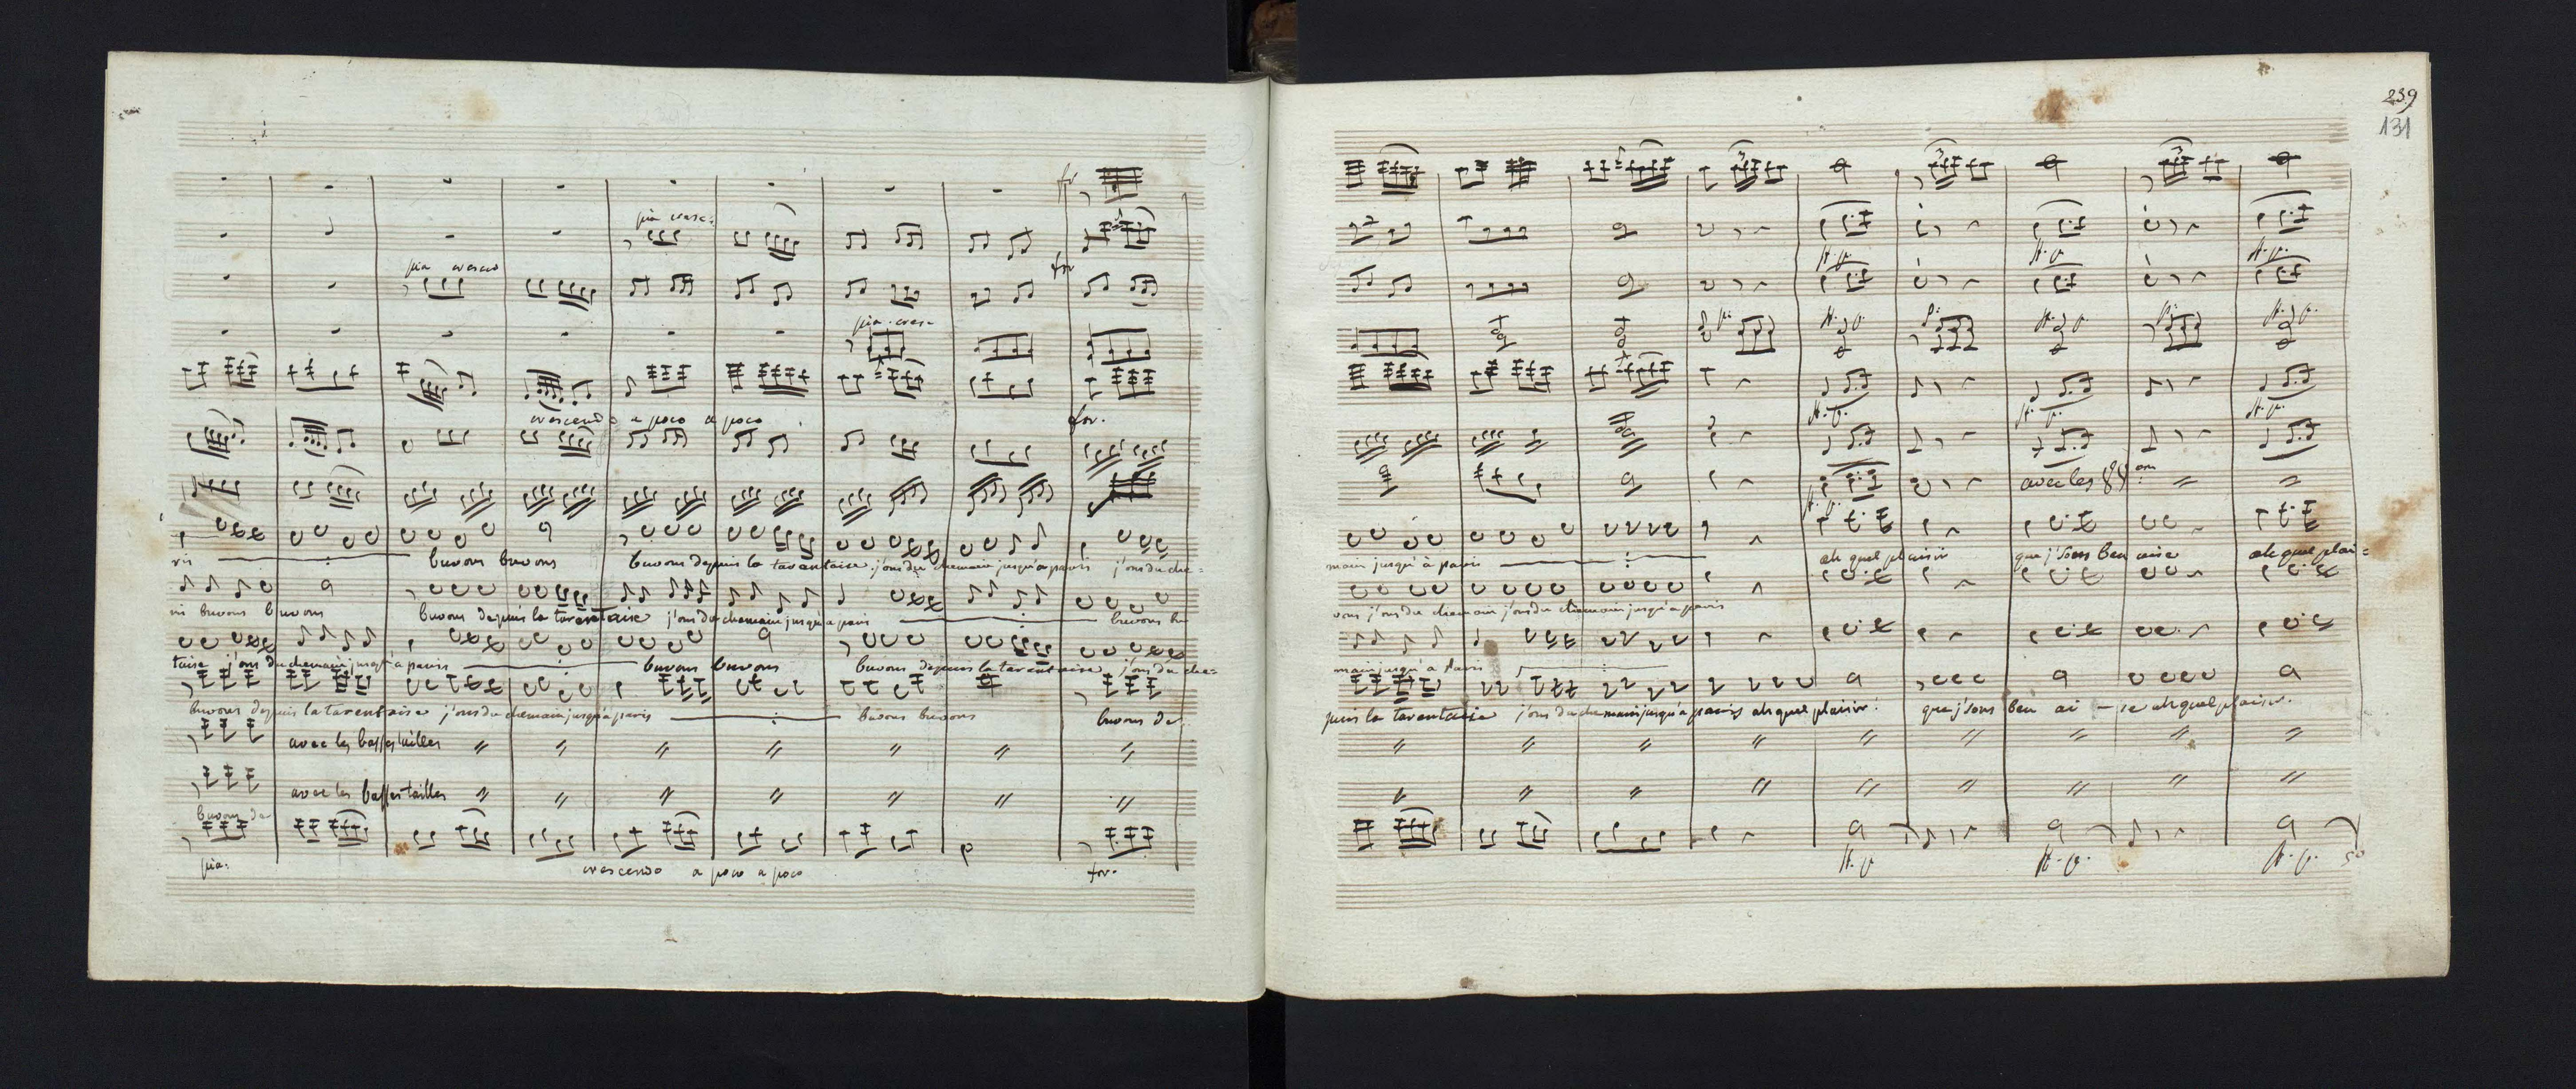 for
pia cresc:
pia cresco
for
pia. cres.
crescendo a poco a poco
for.
ris buvons buvons buvons depuis la tarentaise. j'ons du chemain jusqu'a paris j'ons du che=
ris buvons buvons buvons depuis la tarentaise j'ons du chemain jusqu'a paris buvons bu
taise j'ons du chemain jusqu'a paris buvons buvons buvons depuis la tarentaise j'ons du che=
buvons depuis la tarentaise j'ons du chemain jusqu'a paris buvons buvons buvons de
avec les basses tailles
avec les basses tailles
buvons de
pia: crescendo a poco a poco for.
239
131
avec les
main jusqu'à paris ah quel plaisir que j'sons ben aise ah quel plai=
vons j'ons du chemain j'ons du chemain jusqu'a paris
main jusqu'a paris
puis la tarentaise j'ons du chemain jusqu'a paris ah quel plaisir! que j'sons ben ai - se ah quel plaisir.